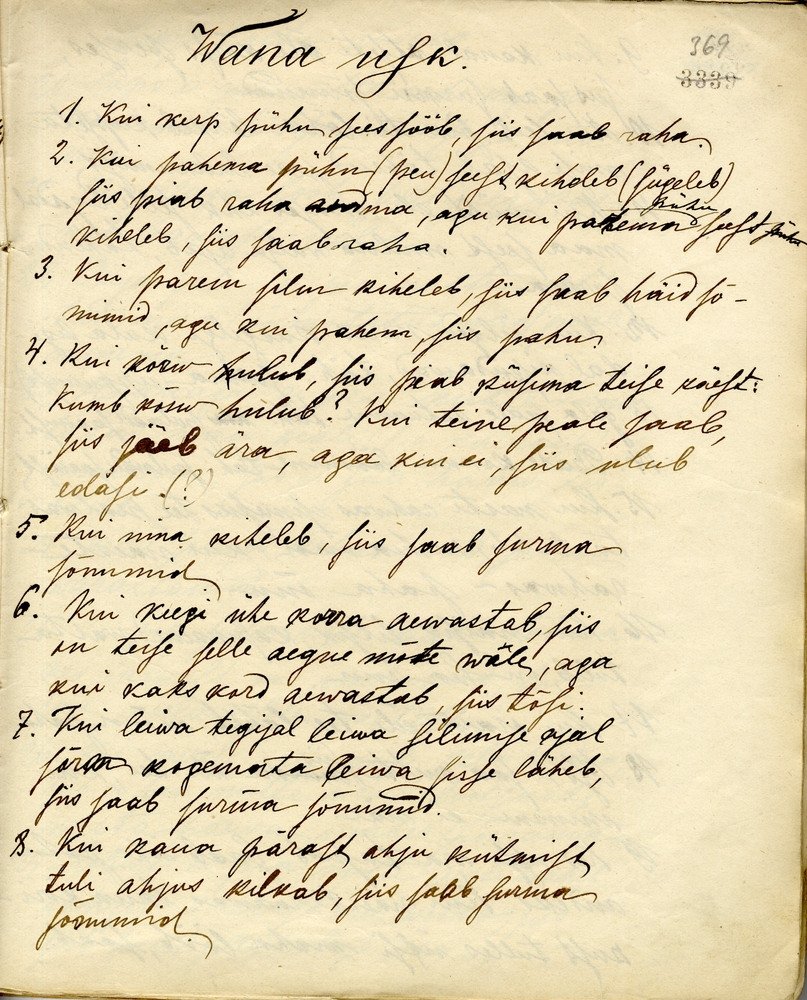 Wana usk.
369
3339
1. Kui kerp pihu sees sööb, siis saab raha.
2. Kui pahema pihu (peu) seest kiheleb (sügeleb)
siis piab raha andma, agu kui parema pihu seest
kiheleb, siis saab raha.
3. Kui parem silm kiheleb, siis saab häid sõ-
nimid, agu kui pahem, siis pahu.
4. Kui kõrw hulub, siis piab küsima teise käest:
Kumb kõrw hulub? Kui teine peale saab,
siis jääb ära, aga kui ei, siis ulub
edasi. (?)
5. Kui nina kiheleb, siis saab surma
sõnumid
6. Kui keegi ühe korra aewastab, siis
on teise selle aegne mõte wale, aga
kui kaks kord aewastab, siis tõsi.
7. Kui leiwa tegijal leiwa silimise ajal
sõrm kogemata leiwa sisse läheb,
siis saab surma sõnumid.
8. Kui kaua pärast ahju kütmist
tuli ahjus kilkab, siis saab surma
sõnumid.